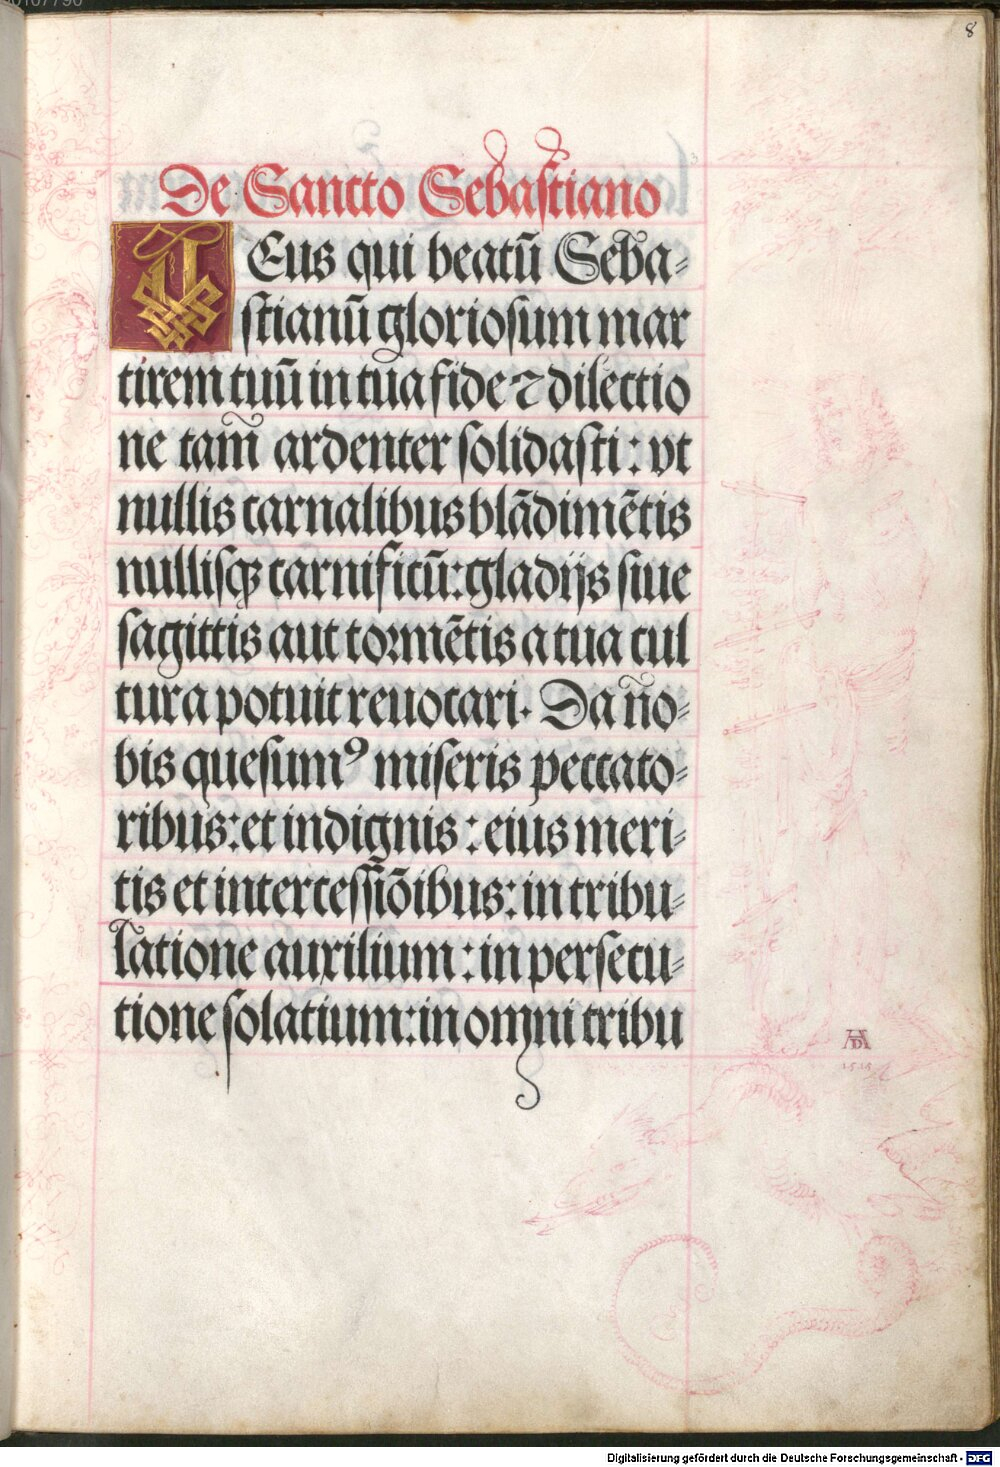 8
De Sancto Sebastiano
DEus qui beatū Seba⸗
stianū gloriosum mar
tirem tuū in tua fide ⁊ dilectio
ne tam̄ ardenter solidasti: vt
nullis carnalibus blādimētis
nullisqꝫ carnificū: gladijs siue
sagittis aut tormētis a tua cul
tura potuit reuocari. Da n̄o⸗
bis quesumꝰ miseris peccato⸗
ribus: et indignis: eius meri⸗
tis et intercessiōibus: in tribu⸗
latione auxilium: in persecu⸗
tione solatium: in omni tribu
AD
Digitalisierung gefördert durch die Deutsche Forschungsgemeinschaft - DFG